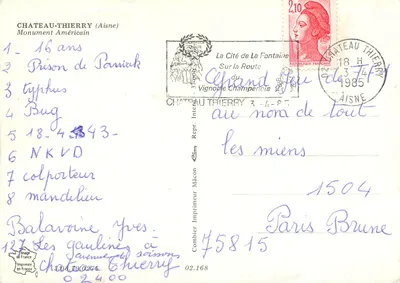 CHATEAU-THIERRY (Aisne)
Monument Américain
1 - 16 ans
2 Prison de Pawiak
3 typhus
4 Bug
5 18-4-43-
6 NKVD
7 colporteur
8 mandelieu
Balavoine Yves
127 Les gaulines à
avenue de soissons
chateau Thierry
02400
02.168
Combier Imprimeur Mâcon
La Cité de La Fontaine
Sur la Route
du
Vignoble Champenois
CHATEAU THIERRY 3-4-85
2,10
02 CHATEAU THIERRY
18 H
3-4
1985
AISNE
Grand Jeu de TF1
au nom de tout
les miens
1504
Paris Brune
75815